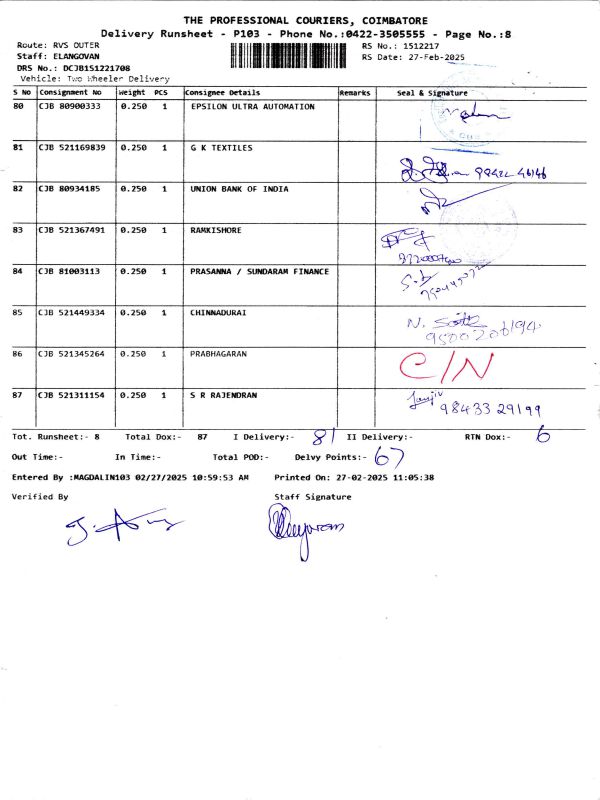 THE PROFESSIONAL COURIERS, COIMBATORE
Delivery Runsheet - P103 - Phone No.:0422-3505555 - Page No.:8
Route: RVS OUTER RS No.: 1512217
Staff: ELANGOVAN RS Date: 27-Feb-2025
DRS No.: DCJB151221708
Vehicle: Two Wheeler Delivery
S No Consignment No Weight PCS Consignee Details Remarks Seal & Signature
80 CJB 80900333 0.250 1 EPSILON ULTRA AUTOMATION
81 CJB 521169839 0.250 1 G K TEXTILES 98422 46146
82 CJB 80934185 0.250 1 UNION BANK OF INDIA
83 CJB 521367491 0.250 1 RAMKISHORE
84 CJB 81003113 0.250 1 PRASANNA / SUNDARAM FINANCE
85 CJB 521449334 0.250 1 CHINNADURAI N.
86 CJB 521345264 0.250 1 PRABHAGARAN C/N
87 CJB 521311154 0.250 1 S R RAJENDRAN 98433 29199
Tot. Runsheet:- 8 Total Dox:- 87 I Delivery:- 81 II Delivery:- RTN Dox:- 6
Out Time:- In Time:- Total POD:- Delvy Points:- 67
Entered By :MAGDALIN103 02/27/2025 10:59:53 AM Printed On: 27-02-2025 11:05:38
Verified By Staff Signature